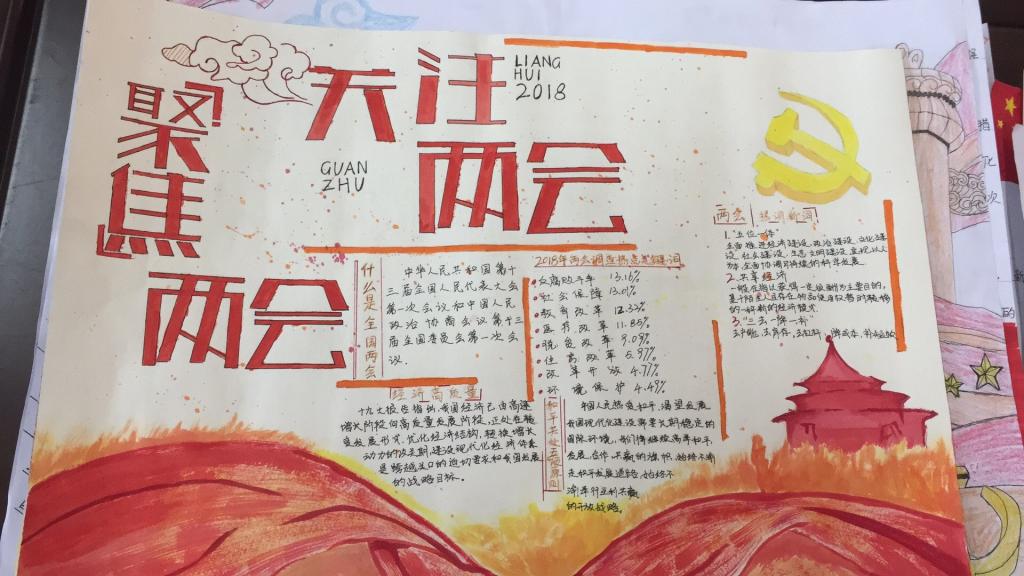 聚焦
两会
关注
两会
LIANG
HUI
2018
GUAN
ZHU
什么是全国两会
中华人民共和国第十
三届全国人民代表大会
第一次会议和中国人民
政治协商会议第十三
届全国委员会第一次会
议
经济高质量
十九大报告指出,我国经济已由高速
增长阶段向高质量发展阶段,正处在转
变发展方式、优化经济结构、转换增长
动力的攻关期,建设现代化经济体系
是跨越关口的迫切要求和我国发展
的战略目标。
2018年两会调查热点关键词
反腐败斗争 13.16%
社会保障 13.01%
教育改革 12.33%
医疗改革 11.85%
脱贫攻坚 9.09%
住房改革 5.97%
改革开放 4.71%
环境保护 4.49%
和平共处五项原则
中国人民热爱和平,渴望发展
我国现代化建设需要长期稳定的
国际环境,我们将继续高举和平、
发展、合作、共赢的旗帜,始终不渝
走和平发展道路,始终不
渝奉行互利共赢
的开放战略。
两会 热词新词
1."五位一体"
全面推进经济建设、政治建设、文化建
设、社会建设、生态文明建设,
2.共享经济
3."三去一降一补"
去产能、去库存、去杠杆、降成本、补短板